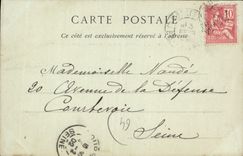 CARTE POSTALE
Ce côté est exclusivement réservé à l'adresse
10
Mademoiselle Naudé
20 Avenue de la Défense
Courbevoie
Seine
SEINE